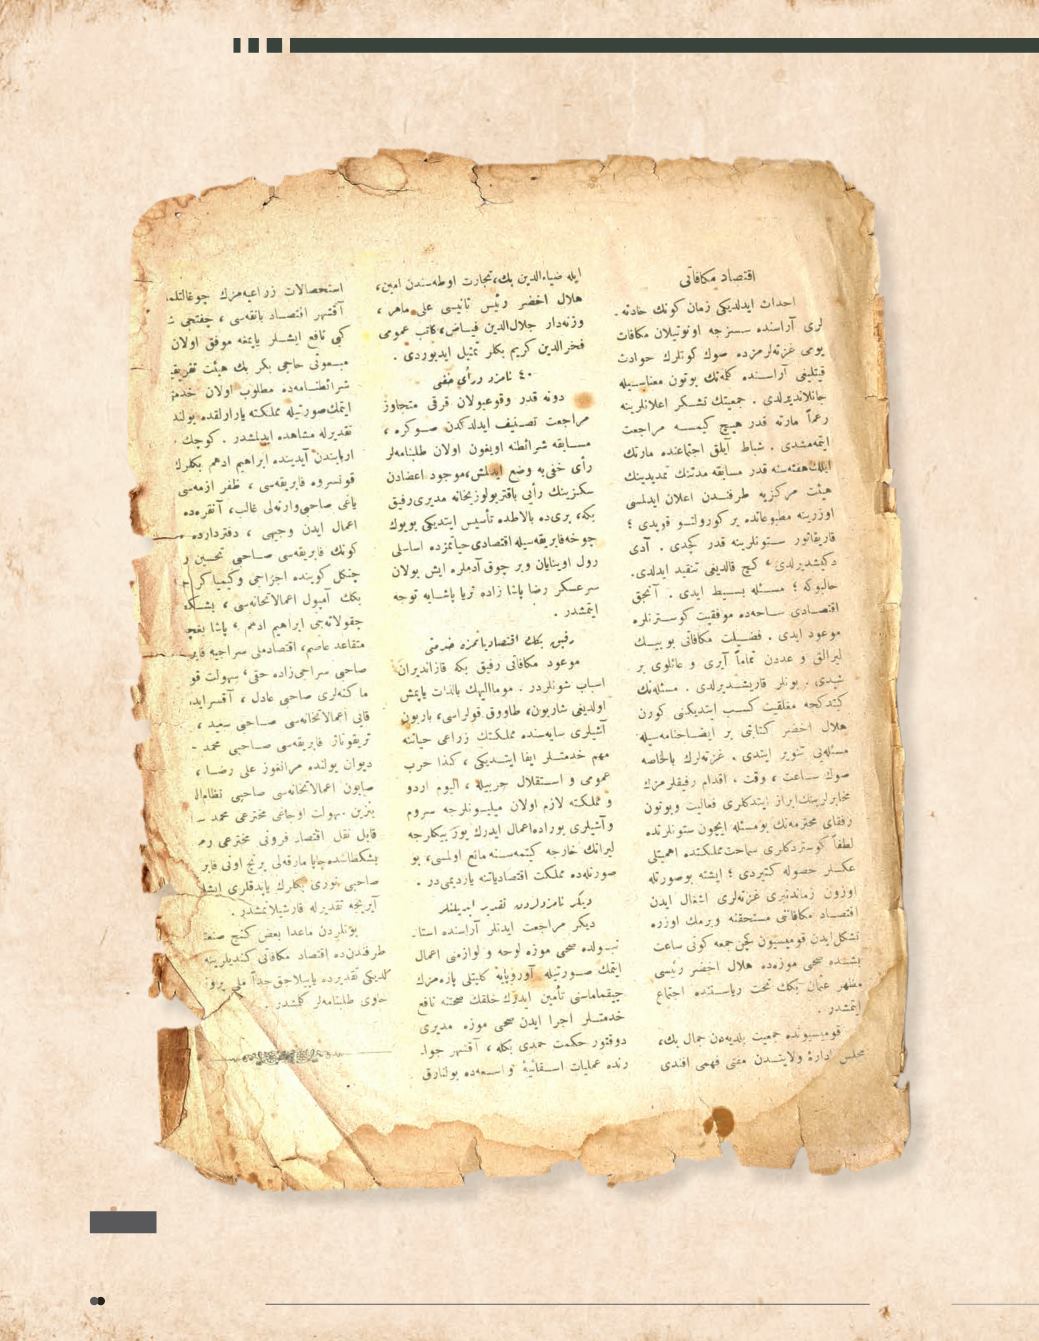 اقتصاد مكافاتى
احداث ايدلديكى زمان كونك حادثه‌
لرى آراسنده سسزجه اونوتيلان مكافات
يومى غزته‌لرمزده صوك كونلرك حوادث
قيتليغى آراسنده كله‌نك بوتون معناسيله
جانلانديرلدى . جمعيتك تشكر اعلانلرينه
رغماً مارته قدر هيچ كيمسه مراجعت
ايتمه‌مشدى . شباط آيلق اجتماعنده مارتك
ايلك هفته‌سنه قدر مسابقه مدتنك تمديدينك
هيئت مركزيه طرفندن اعلان ايدلمسى
اوزرينه مطبوعاتده بر كورولتو قوپدى ؛
قاريقاتور ستونلرينه قدر كچدى . آدى
دكيشديرلدى ، كچ قالديغى تنقيد ايدلدى.
حالبوكه ؛ مسئله بسيط ايدى . آنجق
اقتصادى ساحه‌ده موفقيت كوسترنلره
موعود ايدى . فضيلت مكافاتى يوبيك
ليرالق و عدد تماماً آيرى و عائلوى بر
شيدى . بونلر قاريشديرلدى . مسئله‌نك
كيتدكجه مغلقيت كسب ايتديكنى كورن
هلال اخضر كتابتى بر ايضاحنامه‌سيله
مسئله‌يى تنوير ايتدى . غزته‌لرك بالخاصه
صوك ساعت ، وقت ، اقدام رفيقلرمزك
مخابرلرينك ابراز ايتدكلرى فعاليت وبوتون
رفقاى محترمه‌نك بو مسئله ايچون ستونلرنده
لطفاً كوستردكلرى سماحت مملكتده اهميتلى
عكسلر حصوله كتيردى ؛ ايشته بوصورتله
اوزون زماندنبرى غزته‌لرى اشغال ايدن
اقتصاد مكافاتى مستحقنه ويرمك اوزره
تشكل ايدن قوميسيون كچن جمعه كونى ساعت
بشنده صحى موزه‌ده هلال اخضر رئيسى
مظهر عثمان بكك تحت رياستنده اجتماع
ايتمشدر .
قوميسيونده جمعيت بلديه‌دن جمال بك،
مجلس ادارۀ ولايتدن مفتى فهمى افندى
ايله ضياءالدين بك، تجارت اوطه‌سندن امين،
هلال اخضر رئيس ثانيسى على ماهر ،
وزنه‌دار جلال‌الدين فياض، كاتب عمومى
فخرالدين كريم بكلر تمثيل ايديوردى .
٤٠ نامزد ورأى خفى
دونه قدر وقوعبولان قرقى متجاوز
مراجعت تصنيف ايدلدكدن صوكره ،
مسابقه شرائطنه اويغون اولان طلبنامه‌لر
رأى خفى‌يه وضع ايدلمش، موجود اعضادن
سكزينك رأيى باقتريولوژيخانه مديرى رفيق
بكه، برى‌ده بالاطده تأسيس ايتديكى بويوك
چوخه فابريقه‌سيله اقتصادى حياتمزده اساسلى
رول اوينايان وبر چوق آدملره ايش بولان
سرعسكر رضا پاشا زاده ثريا پاشايه توجه
ايتمشدر .
رفيق بكك اقتصادياتمزده خدمتى
موعود مكافاتى رفيق بكه قازانديران
اسباب شونلردر . مومااليهك بالذات ياپمش
اولديغى شاربون، طاووق قولراسى، باربون
آشيلرى سايه‌سنده مملكتك زراعى حياتنه
مهم خدمتلر ايفا ايتديكى ، كذا حرب
عمومى و استقلال حربيله ، اليوم اردو
و مملكته لازم اولان ميليونلرجه سروم
وآشيلرى بوراده اعمال ايدرك يوز بيكلرجه
ليرانك خارجه كيتمه‌سنه مانع اولمسى، بو
صورتله‌ده مملكت اقتصادياتنه يارديمى‌در .
ديكر نامزدلردن تقدير ايديلنلر
ديكر مراجعت ايدنلر آراسنده استا-
نبولده صحى موزه لوحه و لوازمنى اعمال
ايتمك صورتيله آوروپايه كليتلى پاره‌مزك
چيقماماسنى تأمين ايدرك خلقك صحتنه نافع
خدمتلر اجرا ايدن صحى موزه مديرى
دوقتور حكمت حمدى بكله ، آقشهر جوا-
رنده عمليات اسقائيۀ واسعه‌ده بولنارق
استحصالات زراعيه‌مزك چوغالتلمه
آقشهر اقتصاد بانقه‌سى ، چفتجى
كبى نافع ايشلر ياپمغه موفق اولان
مبعوثى حاجى بكر بك هيئت
شرائطنامه‌ده مطلوب اولان
ايتمك صورتيله مملكته يارارلقده
تقديرله مشاهده ايدلمشدر . كوچك
اربابندن آيدينده ابراهيم ادهم بكلرك
قونسروه فابريقه‌سى ، ظفر ازمه‌سى
ياغى صاحبى وارنه‌لى غالب، آنقره‌ده
اعمال ايدن وجيهى ، دفترداردە
كونك فابريقه‌سى صاحبى تحسين
چنكل كوينده اجزاجى وكيمياكر
بكك آمپول اعمالاتخانه‌سى ، بشكد
چقولاته‌جى ابراهيم ادهم ، پاشا
متقاعد عاصم، اقتصادملى سراجيه
صاحبى سراجى زاده حقى، سهولت
ماكنه‌لرى صاحبى عادل ، آقسرايده
اعمالاتخانه‌سى صاحبى سعيد ،
تريقوتاژ فابريقه‌سى صاحبى محمد
ديوان يولنده على رضا ،
صابون اعمالاتخانه‌سى صاحبى
بنزين سهولت اوجاغى مخترعى محمد
قابل نقل اقتصاد فرونى مخترعى
صاحبى نورى بكلرك ياپدقلرى
آيريجه تقديرله قارشيلانمشدر .
بونلردن ماعدا بعض كنج
طرفندن‌ده اقتصاد مكافاتى كنديلرينه
حاوى طلبنامه‌لر كلمشدر .